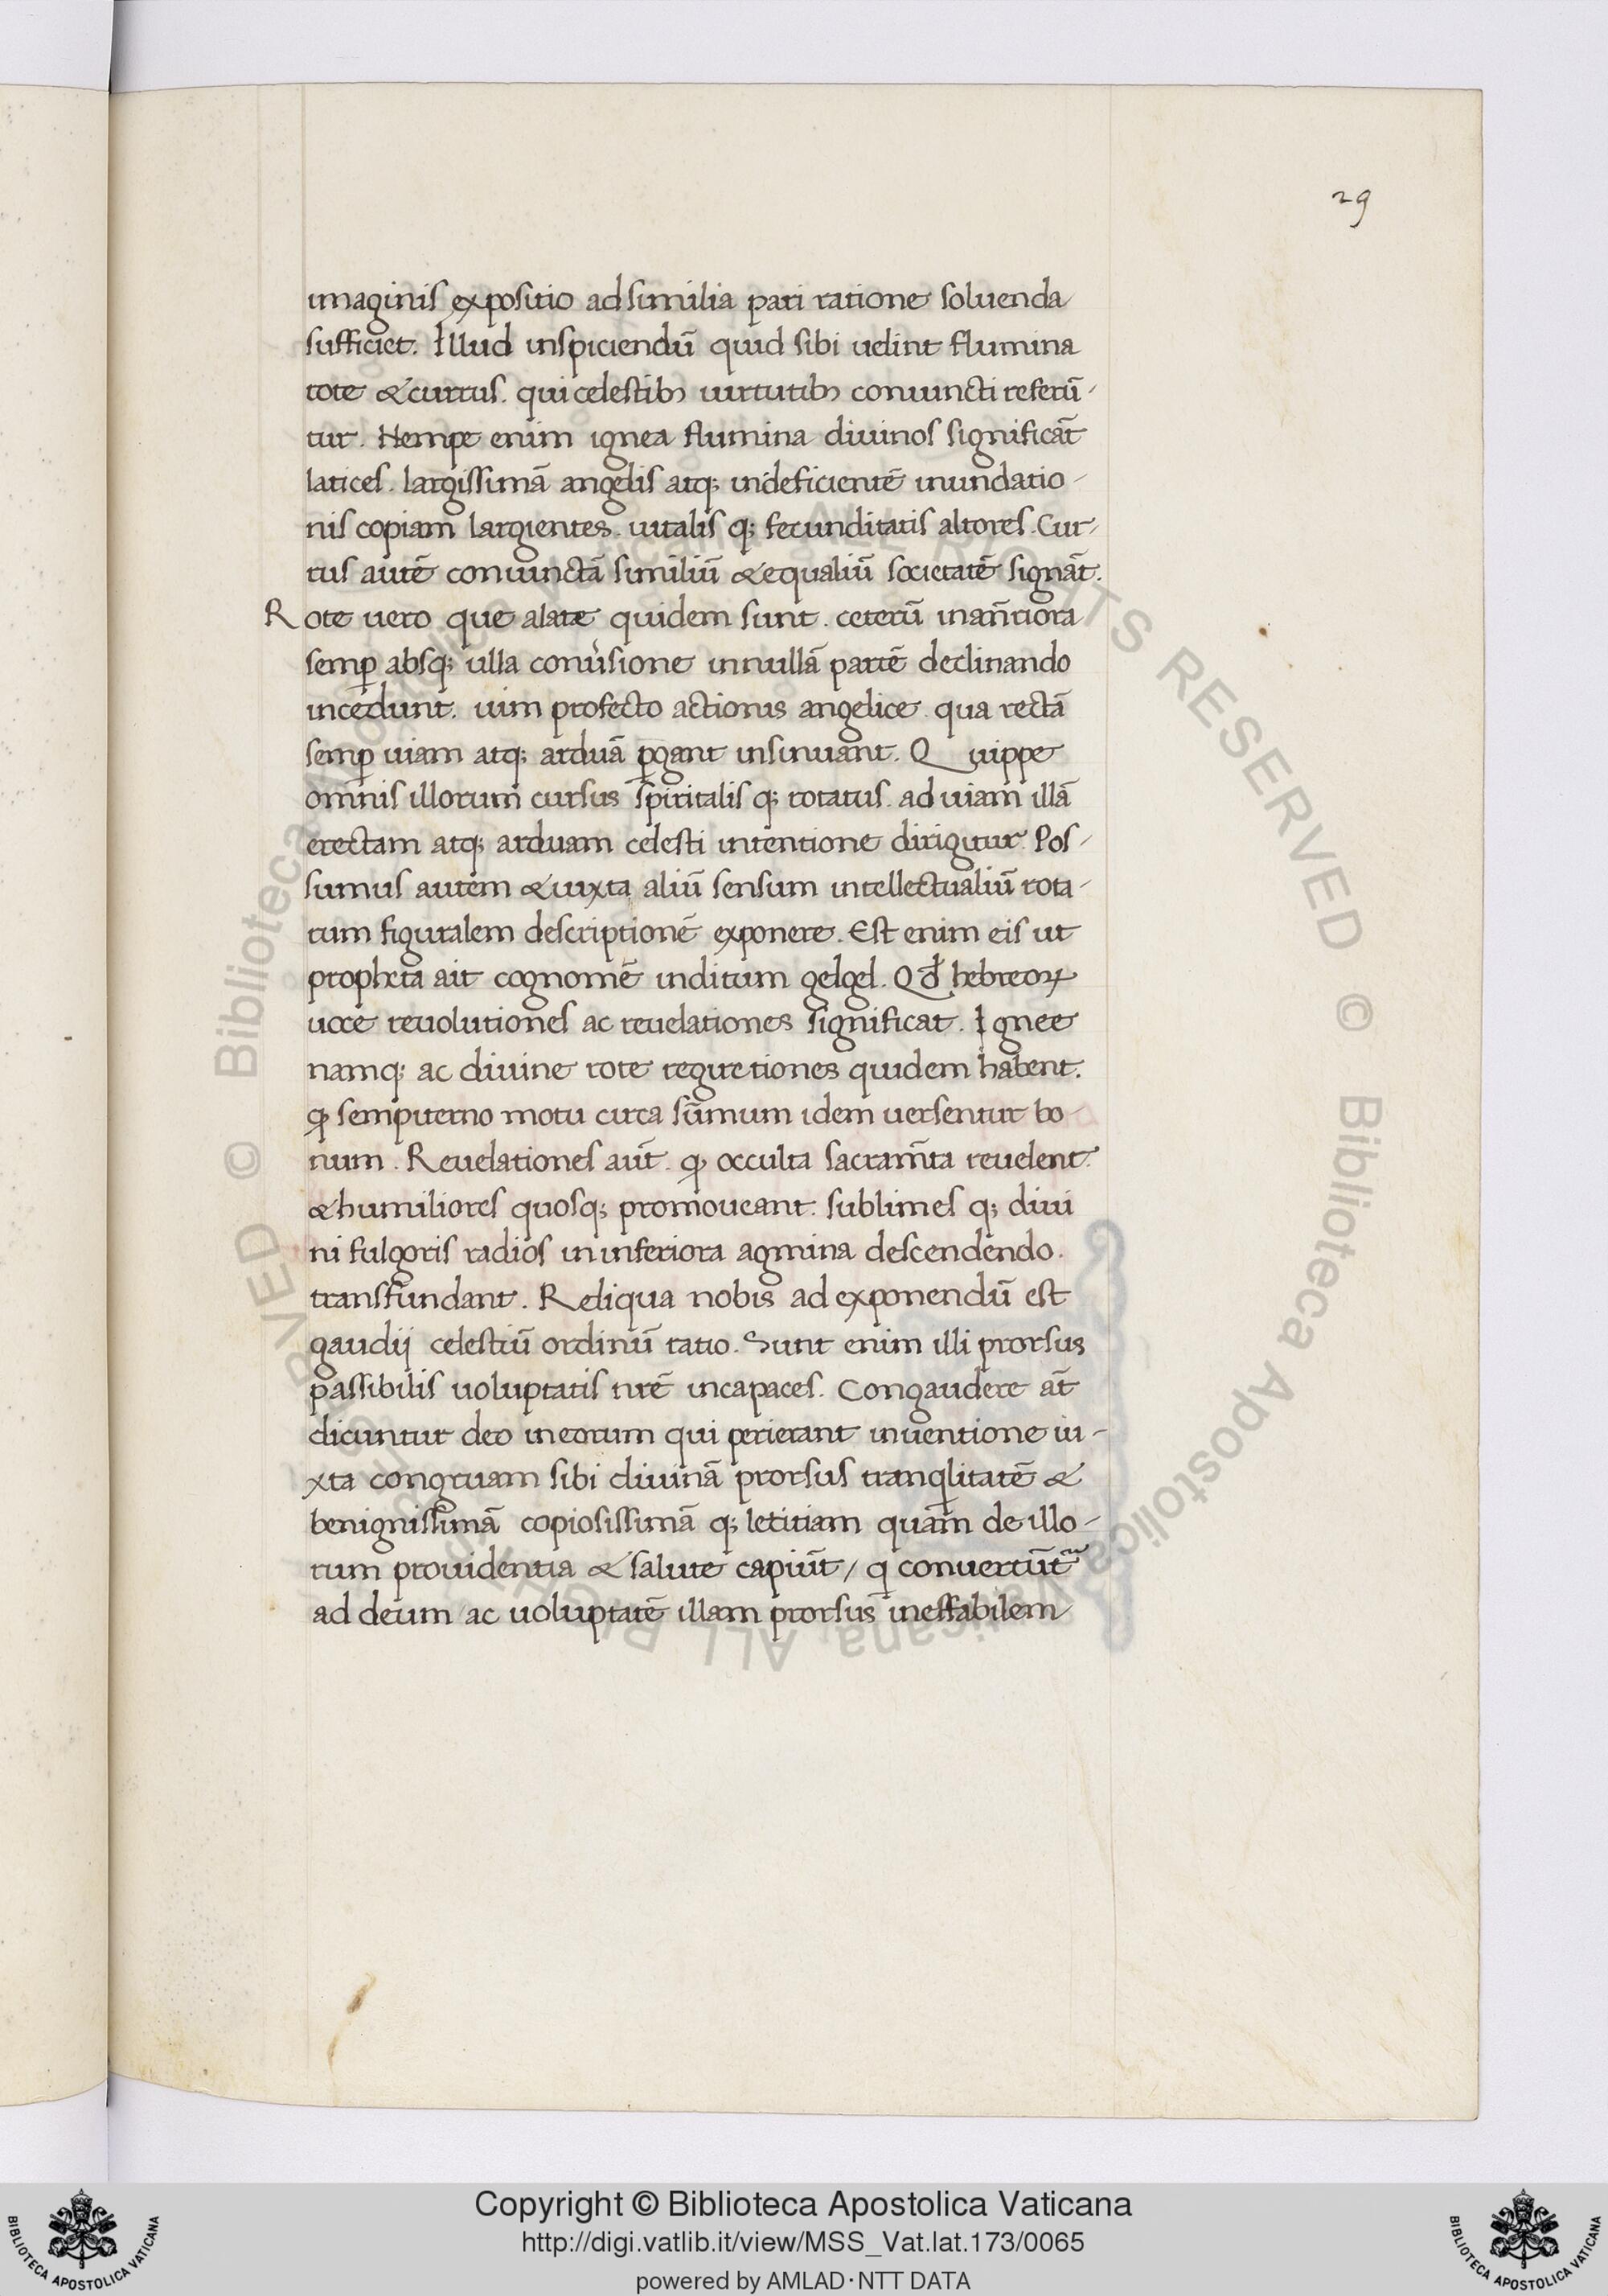 29
imaginis expositio ad similia pari ratione soluenda
sufficiet. Illud inspiciendũ quid sibi uelint flumina
rote & currus. qui celestibꝫ uirtutibꝫ coniuncti referũ-
tur. Nempe enim ignea flumina diuinos significãt
latices. largissimã angelis atqꝫ indeficientẽ inundatio-
nis copiam largientes. uitalis qꝫ fecunditatis altores. Cur-
rus autẽ coniunctã similiũ & equaliũ societatẽ signãt.
Rote uero que alate quidem sunt. ceterũ in añriora
semꝑ absqꝫ ulla conu̓sione in nullã partẽ declinando
incedunt. uim profecto actionis angelice qua rectã
semꝑ uiam atqꝫ arduã ꝑgant insinuant. Quippe
omnis illorum cursus sp̃iritalis qꝫ rotatus. ad uiam illã
erectam atqꝫ arduam celesti intentione dirigitur. Pos-
sumus autem & iuxta aliũ sensum intellectualiũ rota-
rum figuralem descriptionẽ exponere. Est enim eis ut
propheta ait cognomẽ inditum gelgel. Qđ hebreoꝝ
uoce reuolutiones ac reuelationes significat. Ignee
namqꝫ ac diuine rote regiretiones quidem habent.
ꝙ sempiterno motu circa sũmum idem uersentur bo-
num. Reuelationes aũt. ꝙ occulta sacram̃ta reuelent.
& humiliores quosqꝫ promoueant. sublimes qꝫ diui
ni fulgoris radios in inferiora agmina descendendo.
transfundant. Reliqua nobis ad exponendũ est
gaudij celestiũ ordinũ ratio. Sunt enim illi prorsus
passibilis uoluptatis nr̃ẽ incapaces. Congaudere aт̃
dicuntur deo in eorum qui perierant inuentione iu-
xta congruam sibi diuinã prorsus tranqlitatẽ &
benignissimã copiosissimã qꝫ letitiam quam de illo-
rum prouidentia & salute capiũt / q conuertũtᷣ
ad deum ac uoluptatẽ illam prorsus ineffabilem
© Biblioteca Apostolica Vaticana ALL RIGHTS RESERVED
Copyright © Biblioteca Apostolica Vaticana
http://digi.vatlib.it/view/MSS_Vat.lat.173/0065
powered by AMLAD·NTT DATA
BIBLIOTECA APOSTOLICA VATICANA
BIBLIOTECA APOSTOLICA VATICANA